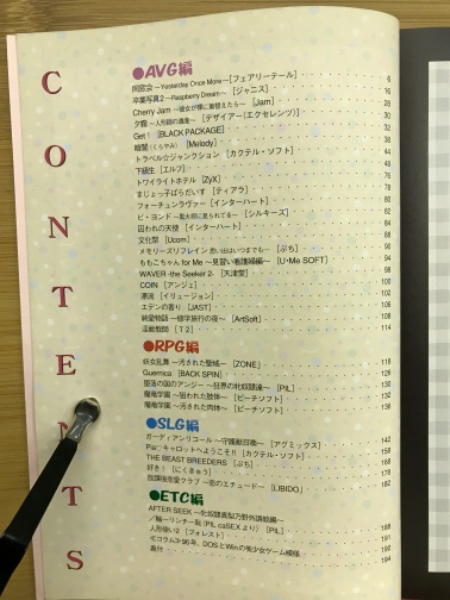 CONTENTS
●AVG編
同窓会 ～Yesterday Once More～ [フェアリーテール] 6
卒業写真2 ～Raspberry Dream～ [ジャニス] 16
Cherry Jam ～彼女が裸に着替えたら～ [Jam] 28
夕霧 ～人形師の遺産～ [デザイアー(エクセレンツ)] 30
Get! [BLACK PACKAGE] 32
暗闇(くらやみ) [Melody] 38
トラベル☆ジャンクション [カクテル・ソフト] 44
下級生 [エルフ] 48
トワイライトホテル [ZyX] 76
まじょっ子ぱらだいす [ティアラ] 78
フォーチュンラヴァー [インターハート] 80
ビ・ヨンド ～黒大将に見られてる～ [シルキーズ] 82
囚われの天使 [インターハート] 84
文化祭 [Ucom] 88
メモリーズリフレイン 思い出はいつまでも… [ぷち] 90
ももこちゃん for Me ～見習い看護婦編～ [U・Me SOFT] 94
WAVER -the Seeker 2- [天津堂] 98
COIN [アンジェ] 100
漂流 [イリュージョン] 102
エデンの香り [JAST] 106
純愛物語 ～修学旅行の夜～ [ArtSoft] 108
淫獣教師 [T2] 114
●RPG編
妖女乱舞 ～汚された聖域～ [ZONE] 118
Guernica [BACK SPIN] 126
堕落の国のアンジー ～狂界の牝奴隷達～ [PIL] 130
魔竜学園 ～狙われた肢体～ [ピーチソフト] 132
魔竜学園 ～汚された肉体～ [ピーチソフト] 136
●SLG編
ガーディアンリコール ～守護獣召喚～ [アグミックス] 142
Pia♡キャロットへようこそ!! [カクテル・ソフト] 158
THE BEAST BREEDERS [ぷち] 168
好き! [にくきゅう] 178
放課後恋愛クラブ ～恋のエチュード～ [LIBIDO] 182
●ETC編
AFTER SEEK ～牝奴隷真梨乃野外調教編～
／輪－リンチ－脱 (PIL caSEXより) [PIL] 188
人形使い2 [フォレスト] 191
≪コラム≫96年、DOSとWinの美少女ゲーム模様 192
奥付 194